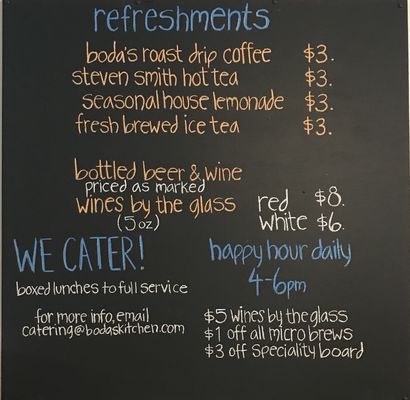 refreshments
boda's roast drip coffee $3.
steven smith hot tea $3.
seasonal house lemonade $3.
fresh brewed ice tea $3.
bottled beer & wine
priced as marked
wines by the glass
(5 oz)
red $8.
white $6.
WE CATER!
boxed lunches to full service
for more info, email
catering@bodaskitchen.com
happy hour daily
4-6pm
$5 wines by the glass
$1 off all micro brews
$3 off speciality board